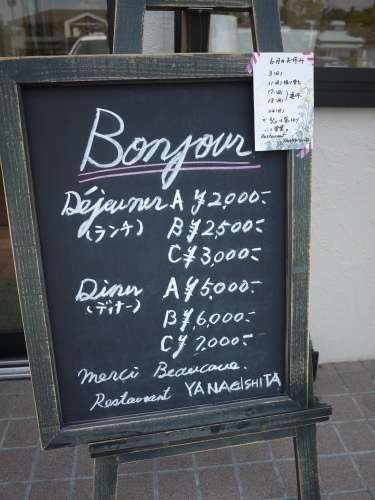 Bonjour
Déjeuner A ¥2,000-
(ランチ) B ¥2,500-
C ¥3,000-
Diner A ¥5,000-
(ディナー) B ¥6,000-
C ¥7,000-
Merci Beaucoue.
Restaurant YANAGISHITA
6月のお休み
3(月)
17(月)
18(火)
連休
24(月)
Restaurant